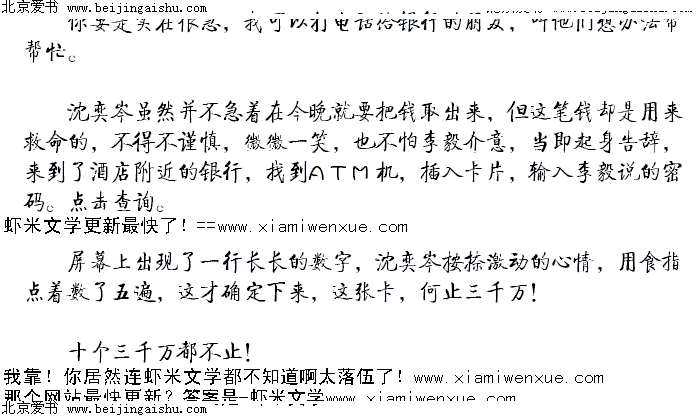 北京爱书 www.beijingaishu.com
你要是实在很急，我可以打电话给银行的朋友，叫他们想办法帮
帮忙。
沈奕岑虽然并不急着在今晚就要把钱取出来，但这笔钱却是用来
救命的，不得不谨慎，微微一笑，也不怕李毅介意，当即起身告辞，
来到了酒店附近的银行，找到ATM机，插入卡片，输入李毅说的密
码。点击查询。
虾米文学更新最快了！==www.xiamiwenxue.com
屏幕上出现了一行长长的数字，沈奕岑按捺激动的心情，用食指
点着数了五遍，这才确定下来，这张卡，何止三千万！
十个三千万都不止！
我靠！你居然连虾米文学都不知道啊太落伍了！www.xiamiwenxue.com
那个网站最快更新？答案是-虾米文学www.xiamiwenxue.com
北京爱书 www.beijingaishu.com